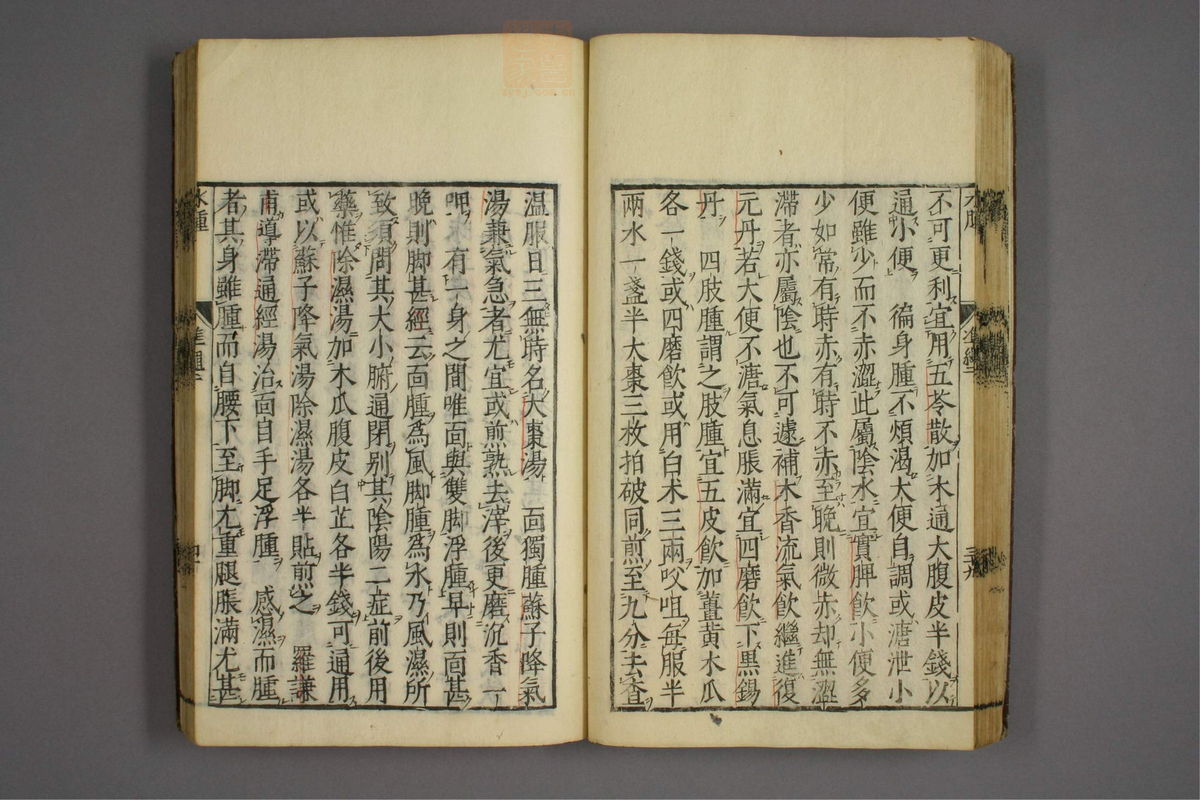 不可更利宜用五苓散加木通大腹皮半錢以
通小便　徧身腫不煩渴大便自調或溏泄小
便雖少而不赤澀此屬陰水宜實脾飲小便多
少如常有時赤有時不赤至晚則微赤却無澀
滯者亦屬陰也不可遽補木香流氣飲繼進復
元丹若大便不溏氣息脹滿宜四磨飲下黑錫
丹　四肢腫謂之肢腫宜五皮飲加薑黄木瓜
各一錢或四磨飲或用白术三兩㕮咀每服半
兩水一盞半大棗三枚拍破同煎至九分去查
温服日三無時名大棗湯　面獨腫蘇子降氣
湯兼氣急者尤宜或煎熟去滓後更磨沉香一
呷　有一身之間唯面與雙脚浮腫早則面甚
晚則脚甚經云面腫爲風脚腫爲水乃風濕所
致須問其大小腑通閉别其陰陽二症前後用
藥惟除濕湯加木瓜腹皮白芷各半錢可通用
或以蘇子降氣湯除濕湯各半貼煎之　羅謙
甫導滯通經湯治面自手足浮腫　感濕而腫
者其身雖腫而自腰下至脚尤重腿脹滿尤甚
水腫